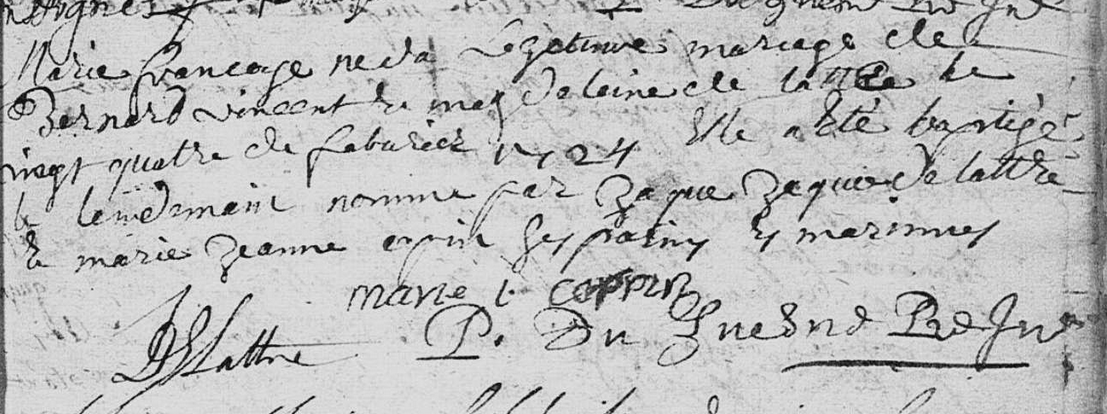 Marie francoise neda Legetime mariage de
Bernard vincent & magdeleine de lattre le
vingt quatre de faburier 1724 Elle a été baptigé
le lendemain nomme par zaque zaque de lattre
& marie zeanne copin ses parins & marinnes
marie j. coppin
DeLattre P. Du Fresne